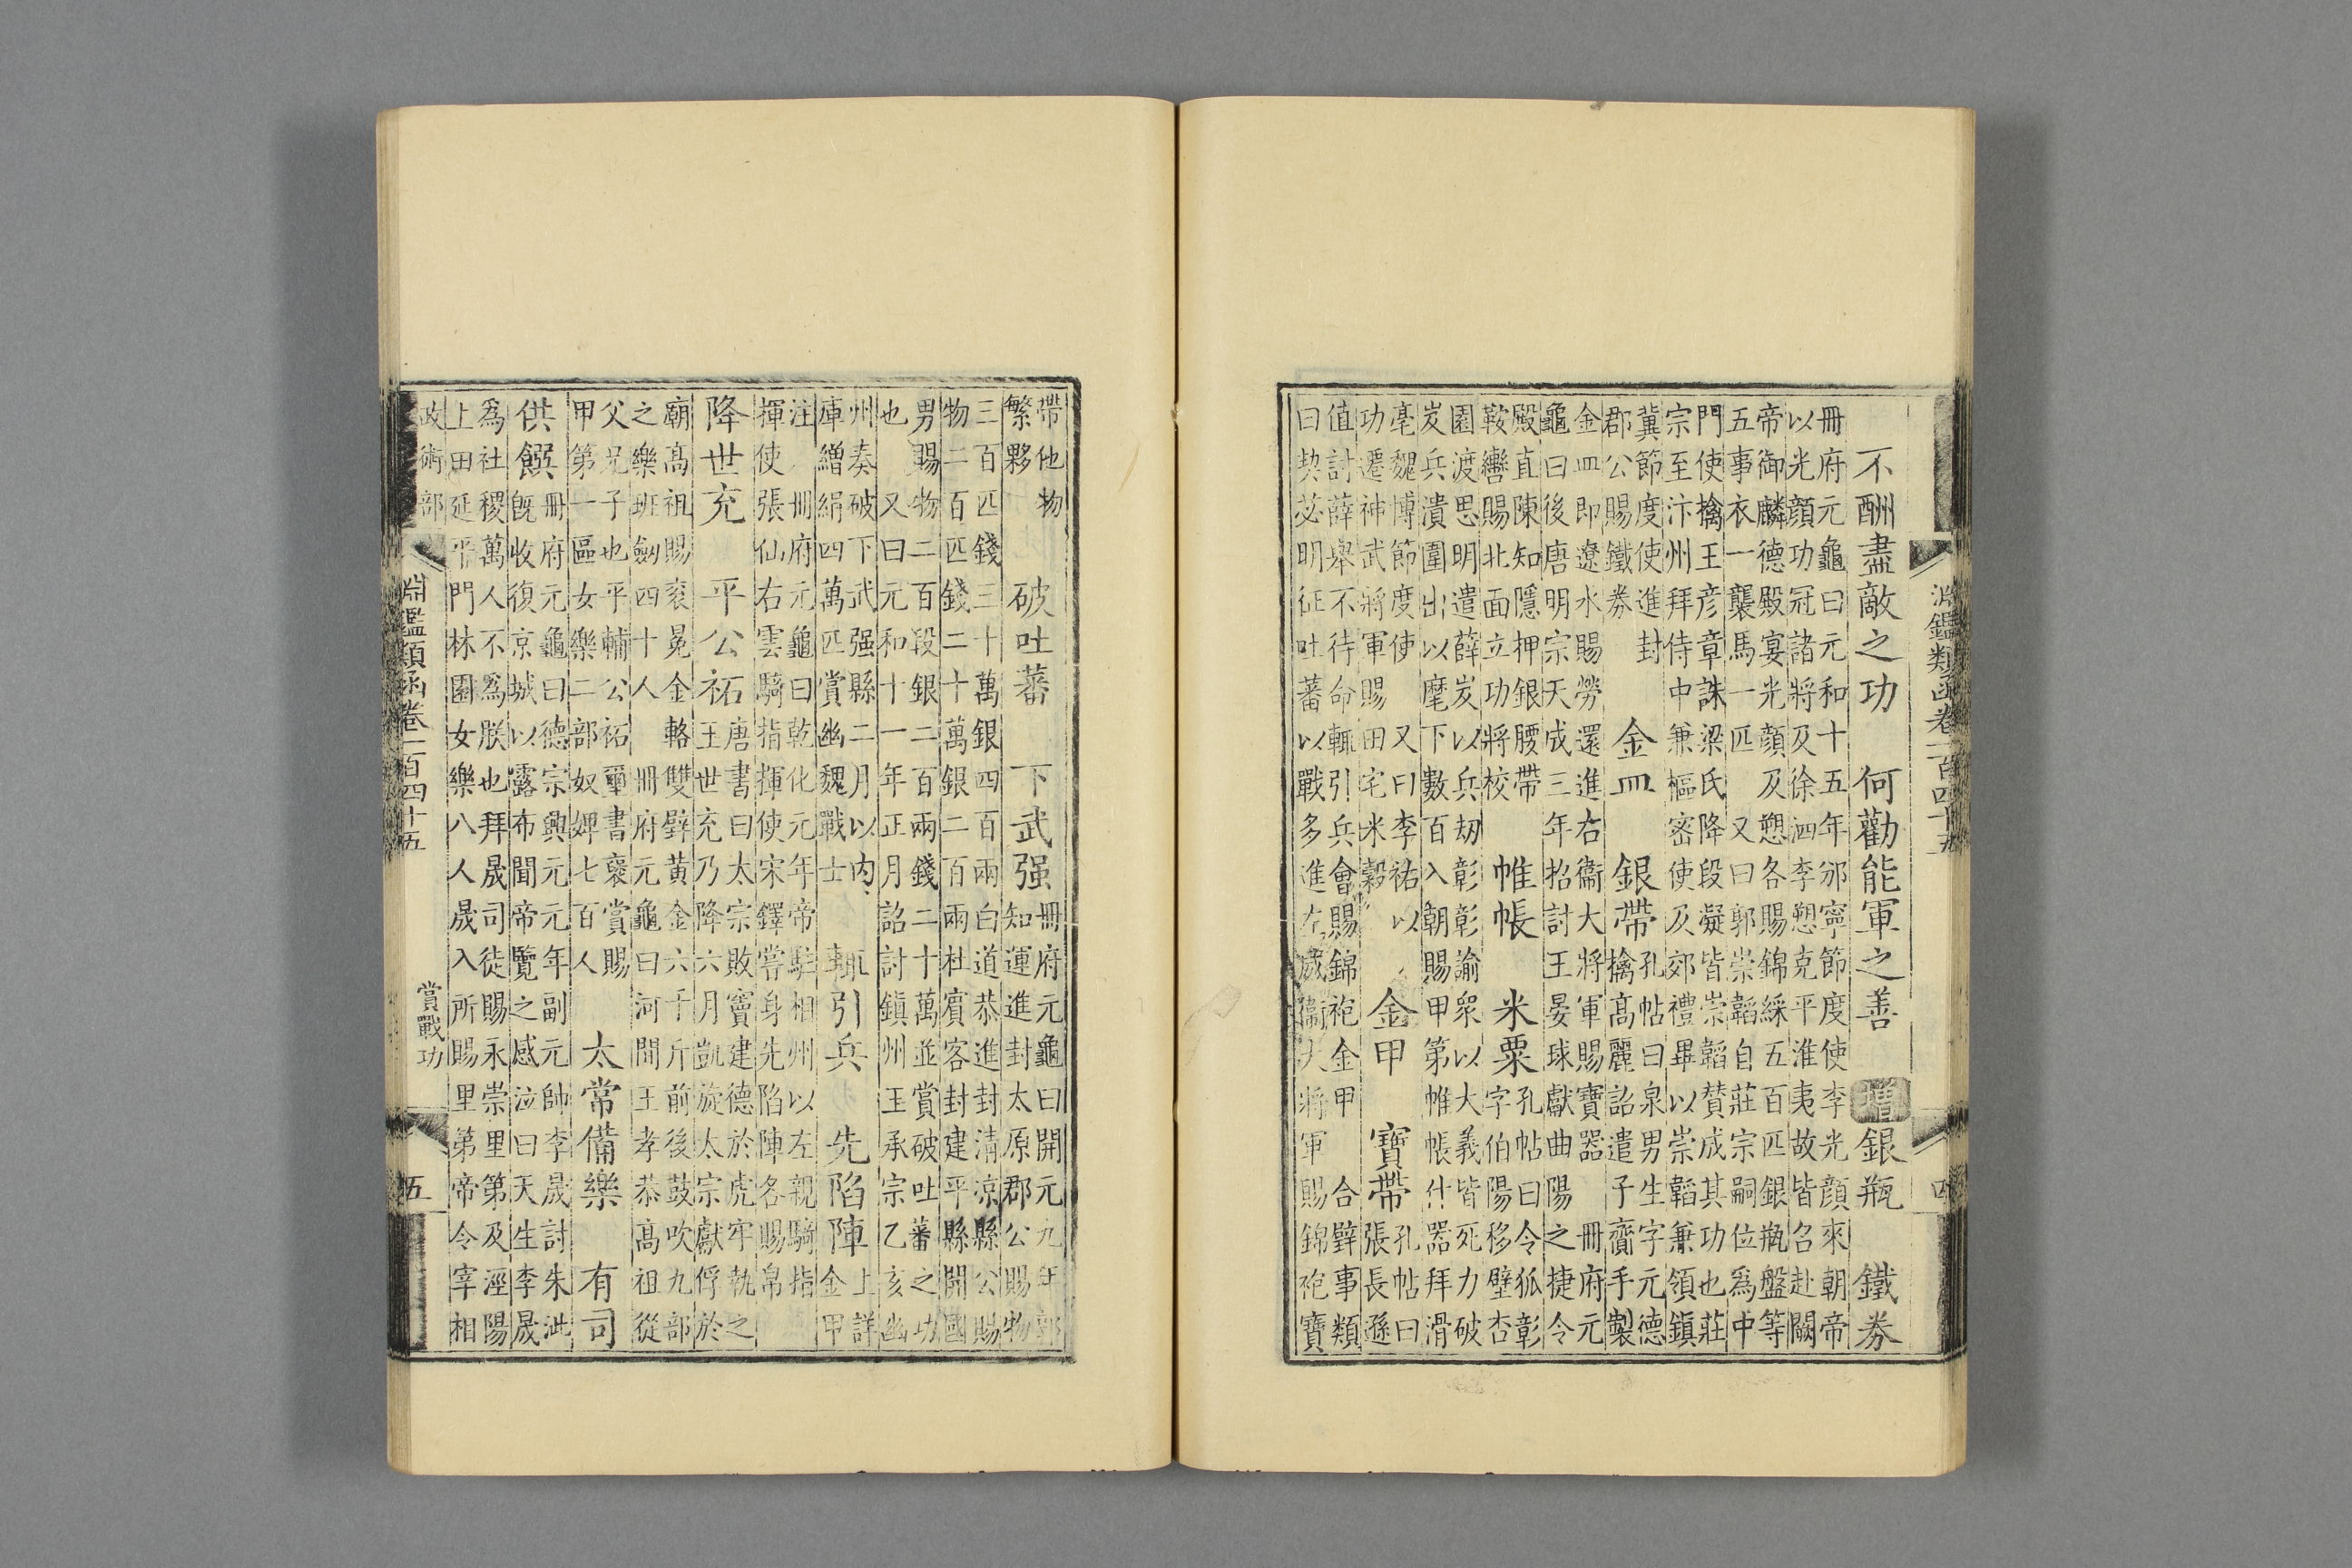 淵鑑類函卷一百四十五 四
不酬盡敵之功 何勸能軍之善 增 銀瓶 鐵券
冊府元龜曰元和十五年邠寧節度使李光顏來朝帝
以光顏功冠諸將及徐泗李愬克平淮夷故皆召赴闕
帝御麟德殿宴光顏及愬各賜錦綵五百匹銀瓶盤等
五事衣一襲馬一匹 又曰郭崇韜自莊宗嗣位為中
門使擒王彥章誅梁氏降段凝皆崇韜贊成其功也莊
宗至汴州拜侍中兼樞密使及郊禮畢以崇韜兼領鎮
冀節度使進封
郡公賜鐵券
金皿 銀帶
孔帖曰泉男生字元德
擒高麗詔遣子齎手製
金皿即遼水賜勞還進右衞大將軍賜寶器 冊府元
龜曰後唐明宗天成三年招討王晏球獻曲陽之捷令
殿直陳知隱押銀腰帶
鞍轡賜北面立功將校
帷帳 米粟
孔帖曰令狐彰
字伯陽移壁杏
園渡思明遣薛岌以兵刼彰彰諭衆以大義皆死力破
岌兵潰圍出以麾下數百入朝賜甲第帷帳什器拜滑
亳魏博節度使 又曰李祐以
功遷神武將軍賜田宅米穀
金甲 寶帶
孔帖曰
張長遜
值討薛舉不待命輒引兵會賜錦袍金甲 合璧事類
曰契苾明征吐蕃以戰多進左威衞大將軍賜錦袍寶
帶他物
繁夥
破吐蕃 下武强
冊府元龜曰開元九年郭
知運進封太原郡公賜物
三百匹錢三十萬銀四百兩白道恭進封清凉縣公賜
物二百匹錢二十萬銀二百兩杜賓客封建平縣開國
男賜物二百段銀二百兩錢二十萬並賞破吐蕃之功
也 又曰元和十一年正月詔討鎮州王承宗乙亥幽
州奏破下武强縣二月以內
庫繒絹四萬匹賞幽魏戰士
輒引兵 先陷陣
上詳
金甲
注 冊府元龜曰乾化元年帝駐相州以左親騎指
揮使張仙右雲騎指揮使宋鐸嘗身先陷陣各賜帛
降世充 平公祏
唐書曰太宗敗竇建德於虎牢執之
王世充乃降六月凱旋太宗獻俘於
廟高祖賜衮冕金輅雙璧黃金六千斤前後鼓吹九部
之樂班劒四十人 冊府元龜曰河間王孝恭高祖從
父兄子也平輔公祏璽書褒賞賜
甲第一區女樂二部奴婢七百人
太常備樂 有司
供饌
冊府元龜曰德宗興元元年副元帥李晟討朱泚
旣收復京城以露布聞帝覽之感泣曰天生李晟
為社稷萬人不為朕也拜晟司徒賜永崇里第及涇陽
上田延平門林園女樂八人晟入所賜里第帝令宰相
政術部 淵鑑類函卷一百四十五 賞戰功 五